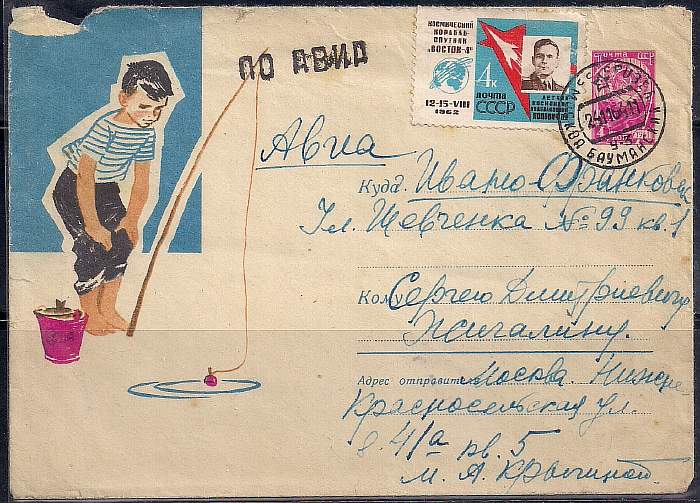 ПО АВИА
КОСМИЧЕСКИЙ
КОРАБЛЬ-
СПУТНИК
"ВОСТОК-4"
12-15-VIII
1962
4к
ПОЧТА
СССР
ЛЕТЧИК
КОСМОНАВТ
ПОПОВИЧ П.Р.
ПОЧТА СССР
МОСКВА БАУМАНСКИЙ
Авиа
Куда Ивано-Франковск
Ул. Шевченка № 99 кв. 1
Кому Сергею Дмитриевичу
Жигалину.
Адрес отправителя Москва. Нижне-
Красносельская ул.
д. 41/а кв. 5
М. А. Крыгиной